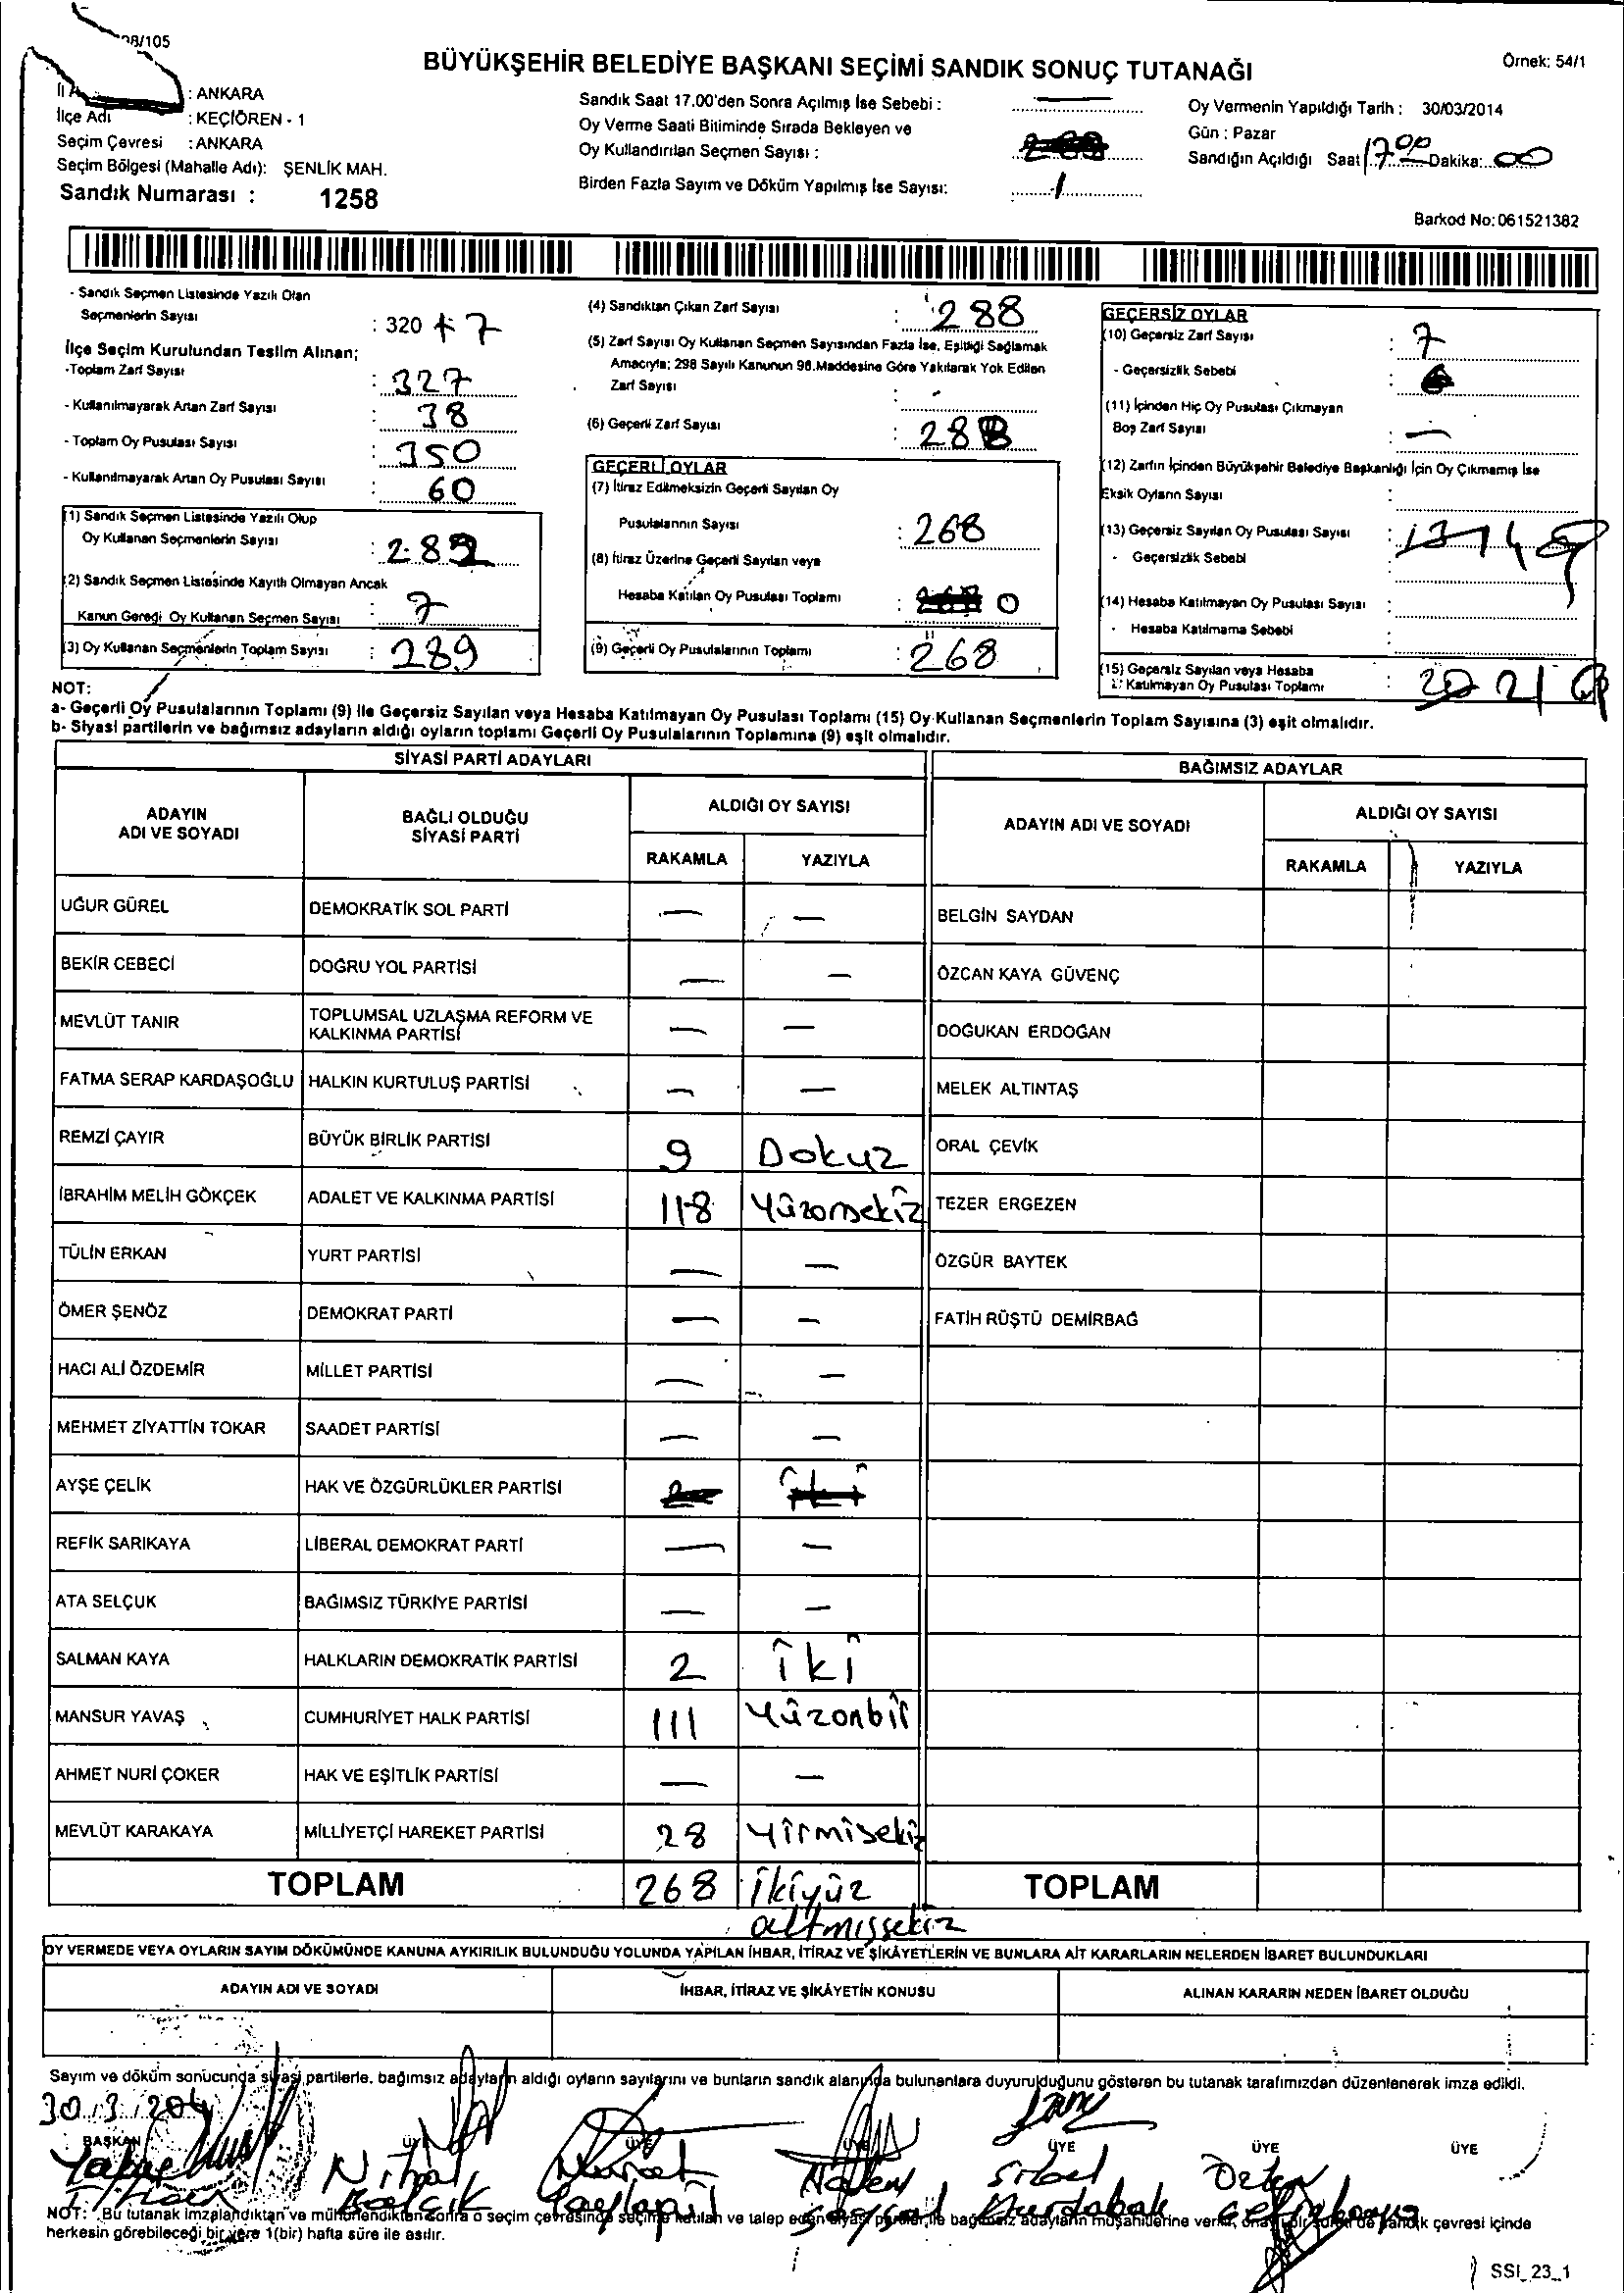 98/105
BÜYÜKŞEHİR BELEDİYE BAŞKANI SEÇİMİ SANDIK SONUÇ TUTANAĞI
Örnek: 54/1
: ANKARA
İlçe Adı : KEÇİÖREN - 1
Seçim Çevresi : ANKARA
Seçim Bölgesi (Mahalle Adı): ŞENLİK MAH.
Sandık Numarası : 1258
Sandık Saat 17.00'den Sonra Açılmış İse Sebebi :
Oy Verme Saati Bitiminde Sırada Bekleyen ve
Oy Kullandırılan Seçmen Sayısı :
Birden Fazla Sayım ve Döküm Yapılmış İse Sayısı: 1
Oy Vermenin Yapıldığı Tarih : 30/03/2014
Gün : Pazar
Sandığın Açıldığı Saat 17 00 Dakika: 00
Barkod No: 061521382
- Sandık Seçmen Listesinde Yazılı Olan
Seçmenlerin Sayısı : 320 + 7
İlçe Seçim Kurulundan Teslim Alınan;
-Toplam Zarf Sayısı : 327
- Kullanılmayarak Artan Zarf Sayısı : 38
- Toplam Oy Pusulası Sayısı : 350
- Kullanılmayarak Artan Oy Pusulası Sayısı : 60
(1) Sandık Seçmen Listesinde Yazılı Olup
Oy Kullanan Seçmenlerin Sayısı : 282
(2) Sandık Seçmen Listesinde Kayıtlı Olmayan Ancak
Kanun Gereği Oy Kullanan Seçmen Sayısı : 7
(3) Oy Kullanan Seçmenlerin Toplam Sayısı : 289
(4) Sandıktan Çıkan Zarf Sayısı : 288
(5) Zarf Sayısı Oy Kullanan Seçmen Sayısından Fazla İse, Eşitliği Sağlamak
Amacıyla; 298 Sayılı Kanunun 98.Maddesine Göre Yakılarak Yok Edilen
Zarf Sayısı : -
(6) Geçerli Zarf Sayısı : 288
GEÇERLİ OYLAR
(7) İtiraz Edilmeksizin Geçerli Sayılan Oy
Pusulalarının Sayısı : 268
(8) İtiraz Üzerine Geçerli Sayılan veya
Hesaba Katılan Oy Pusulası Toplamı : 0
(9) Geçerli Oy Pusulalarının Toplamı : 268
GEÇERSİZ OYLAR
(10) Geçersiz Zarf Sayısı : 7
- Geçersizlik Sebebi :
(11) İçinden Hiç Oy Pusulası Çıkmayan
Boş Zarf Sayısı : —
(12) Zarfın İçinden Büyükşehir Belediye Başkanlığı İçin Oy Çıkmamış İse
Eksik Oyların Sayısı :
(13) Geçersiz Sayılan Oy Pusulası Sayısı : 13 14
- Geçersizlik Sebebi
(14) Hesaba Katılmayan Oy Pusulası Sayısı :
- Hesaba Katılmama Sebebi
(15) Geçersiz Sayılan veya Hesaba
Katılmayan Oy Pusulası Toplamı : 20 21
NOT:
a- Geçerli Oy Pusulalarının Toplamı (9) ile Geçersiz Sayılan veya Hesaba Katılmayan Oy Pusulası Toplamı (15) Oy Kullanan Seçmenlerin Toplam Sayısına (3) eşit olmalıdır.
b- Siyasi partilerin ve bağımsız adayların aldığı oyların toplamı Geçerli Oy Pusulalarının Toplamına (9) eşit olmalıdır.
SİYASİ PARTİ ADAYLARI
BAĞIMSIZ ADAYLAR
ADAYIN ADI VE SOYADI
BAĞLI OLDUĞU SİYASİ PARTİ
ALDIĞI OY SAYISI
RAKAMLA YAZIYLA
ADAYIN ADI VE SOYADI
ALDIĞI OY SAYISI
RAKAMLA YAZIYLA
UĞUR GÜREL DEMOKRATİK SOL PARTİ — — BELGİN SAYDAN
BEKİR CEBECİ DOĞRU YOL PARTİSİ — — ÖZCAN KAYA GÜVENÇ
MEVLÜT TANIR TOPLUMSAL UZLAŞMA REFORM VE KALKINMA PARTİSİ — — DOĞUKAN ERDOĞAN
FATMA SERAP KARDAŞOĞLU HALKIN KURTULUŞ PARTİSİ — — MELEK ALTINTAŞ
REMZİ ÇAYIR BÜYÜK BİRLİK PARTİSİ 9 Dokuz ORAL ÇEVİK
İBRAHİM MELİH GÖKÇEK ADALET VE KALKINMA PARTİSİ 118 Yüzonsekiz TEZER ERGEZEN
TÜLİN ERKAN YURT PARTİSİ — — ÖZGÜR BAYTEK
ÖMER ŞENÖZ DEMOKRAT PARTİ — — FATİH RÜŞTÜ DEMİRBAĞ
HACI ALİ ÖZDEMİR MİLLET PARTİSİ — —
MEHMET ZİYATTİN TOKAR SAADET PARTİSİ — —
AYŞE ÇELİK HAK VE ÖZGÜRLÜKLER PARTİSİ 2 iki
REFİK SARIKAYA LİBERAL DEMOKRAT PARTİ — —
ATA SELÇUK BAĞIMSIZ TÜRKİYE PARTİSİ — —
SALMAN KAYA HALKLARIN DEMOKRATİK PARTİSİ 2 iki
MANSUR YAVAŞ CUMHURİYET HALK PARTİSİ 111 Yüzonbir
AHMET NURİ ÇOKER HAK VE EŞİTLİK PARTİSİ — —
MEVLÜT KARAKAYA MİLLİYETÇİ HAREKET PARTİSİ 28 Yirmisekiz
TOPLAM 268 ikiyüz altmışsekiz TOPLAM
OY VERMEDE VEYA OYLARIN SAYIM DÖKÜMÜNDE KANUNA AYKIRILIK BULUNDUĞU YOLUNDA YAPILAN İHBAR, İTİRAZ VE ŞİKÂYETLERİN VE BUNLARA AİT KARARLARIN NELERDEN İBARET BULUNDUKLARI
ADAYIN ADI VE SOYADI İHBAR, İTİRAZ VE ŞİKÂYETİN KONUSU ALINAN KARARIN NEDEN İBARET OLDUĞU
Sayım ve döküm sonucunda siyasi partilerle, bağımsız adayların aldığı oyların sayılarını ve bunların sandık alanında bulunanlara duyurulduğunu gösteren bu tutanak tarafımızdan düzenlenerek imza edildi.
30/3/2014
BAŞKAN ÜYE ÜYE ÜYE ÜYE ÜYE ÜYE
Nihal Murat Sibel
NOT: Bu tutanak imzalandıktan ve mühürlendikten sonra o seçim çevresinde seçime katılan ve talep eden siyasi partiler ile bağımsız adayların müşahitlerine verilir, onaylı bir sureti de sandık çevresi içinde
herkesin görebileceği bir yere 1(bir) hafta süre ile asılır.
SSI_23_1